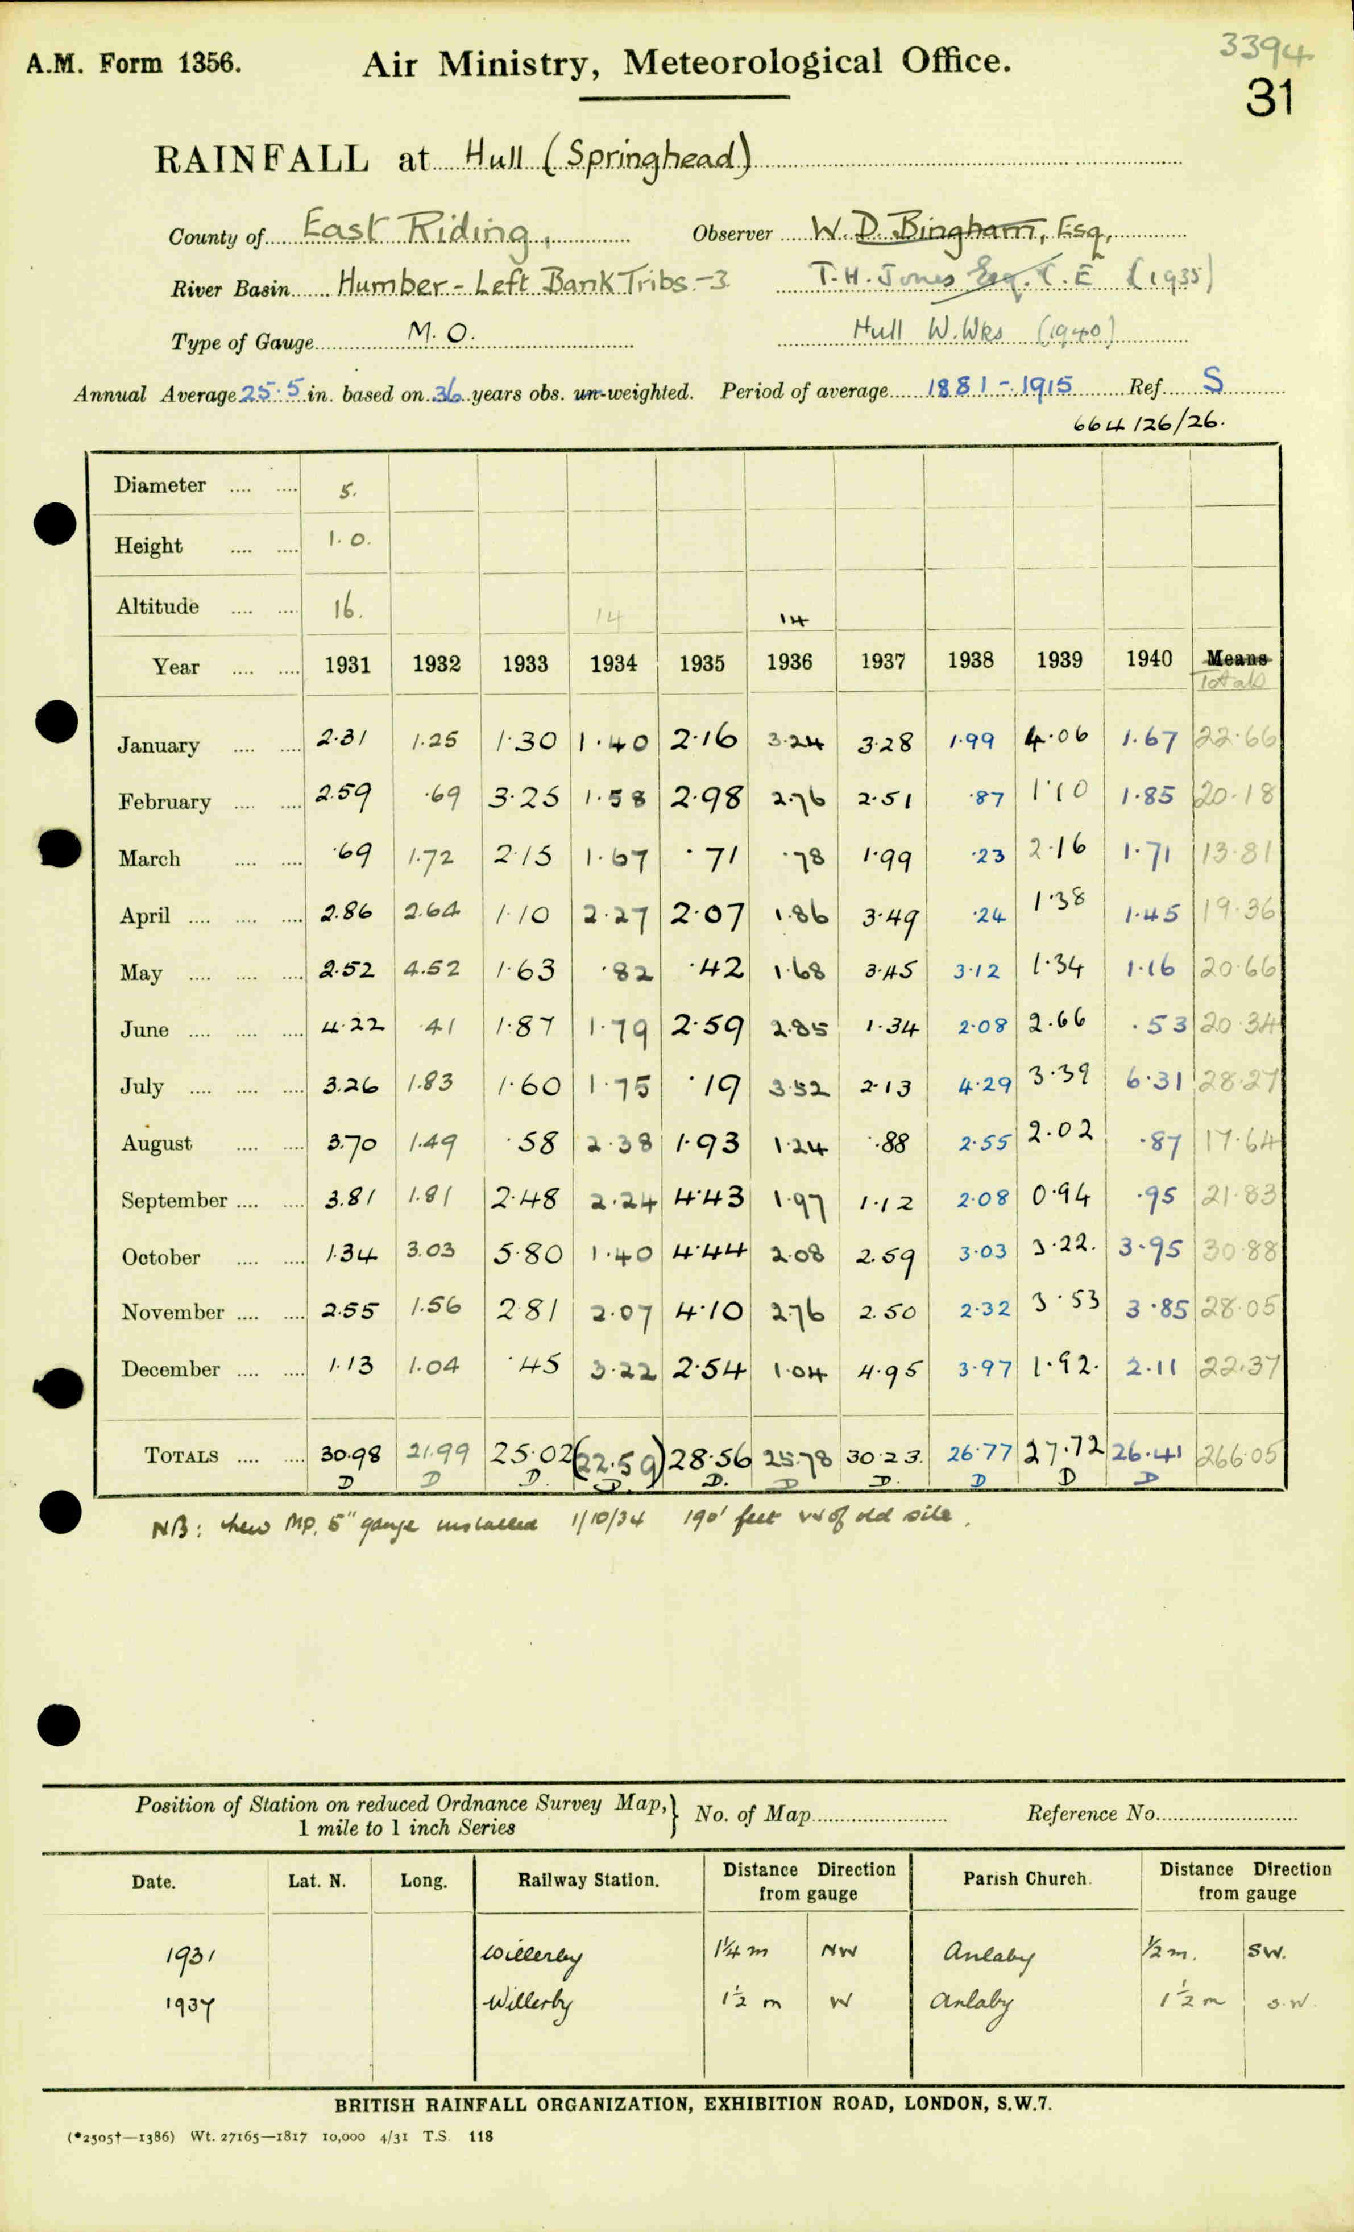 3394
A.M. Form 1356. Air Ministry, Meteorological Office. 31
RAINFALL at Hull (Springhead)
County of East Riding, Observer W. D. Bingham, Esq,
River Basin Humber - Left Bank Tribs. - 3 T. H. Jones Esq. C. E (1935)
Type of Gauge M. O. Hull W. Wks (1940)
Annual Average 25.5 in. based on 36 years obs. un-weighted. Period of average 1881 - 1915 Ref. S
664/26/26.
Diameter .... .... 5.
Height .... .... 1.0.
Altitude .... .... 16. 14 14
Year .... .... 1931 1932 1933 1934 1935 1936 1937 1938 1939 1940 Means
Totals
January .... .... 2.31 1.25 1.30 1.40 2.16 3.24 3.28 1.99 4.06 1.67 22.66
February .... .... 2.59 .69 3.25 1.58 2.98 2.76 2.51 .87 1.10 1.85 20.18
March .... .... .69 1.72 2.15 1.67 .71 .78 1.99 .23 2.16 1.71 13.81
April .... .... .... 2.86 2.64 1.10 2.27 2.07 1.86 3.49 .24 1.38 1.45 19.36
May .... .... .... 2.52 4.52 1.63 .82 .42 1.68 3.45 3.12 1.34 1.16 20.66
June .... .... .... 4.22 .41 1.87 1.79 2.59 2.85 1.34 2.08 2.66 .53 20.34
July .... .... .... 3.26 1.83 1.60 1.75 .19 3.52 2.13 4.29 3.39 6.31 28.27
August .... .... 3.70 1.49 .58 2.38 1.93 1.24 .88 2.55 2.02 .87 17.64
September .... .... 3.81 1.81 2.48 2.24 4.43 1.97 1.12 2.08 0.94 .95 21.83
October .... .... 1.34 3.03 5.80 1.40 4.44 2.08 2.59 3.03 3.22. 3.95 30.88
November .... .... 2.55 1.56 2.81 2.07 4.10 2.76 2.50 2.32 3.53 3.85 28.05
December .... .... 1.13 1.04 .45 3.22 2.54 1.04 4.95 3.97 1.92. 2.11 22.37
TOTALS .... .... 30.98 21.99 25.02 (22.59) 28.56 25.78 30.23. 26.77 27.72 26.41 266.05
D D D. D. D. D D. D D D
NB: new MO. 5" gauge installed 1/10/34 190' feet W of old site.
Position of Station on reduced Ordnance Survey Map, } No. of Map Reference No.
1 mile to 1 inch Series
Date. Lat. N. Long. Railway Station. Distance Direction from gauge Parish Church. Distance Direction from gauge
1931 Willerby 1¼ m NW Anlaby ½ m. SW.
1937 Willerby 1½ m W Anlaby 1½ m S.W.
BRITISH RAINFALL ORGANIZATION, EXHIBITION ROAD, LONDON, S.W.7.
(*2505†—1386) Wt. 27165—1817 10,000 4/31 T.S. 118